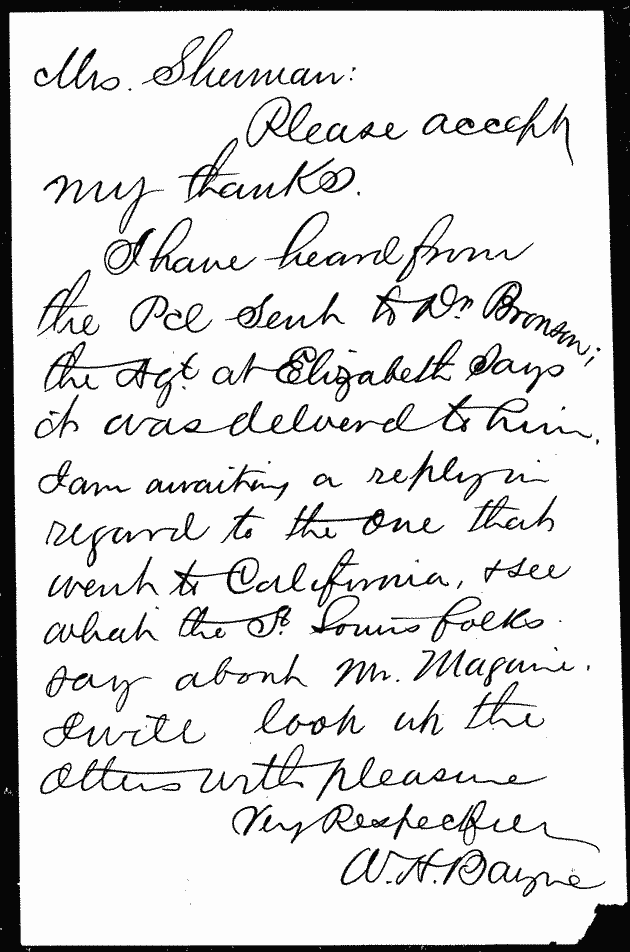 Mrs. Sherman:
Please accept
my thanks.
I have heard from
the Pcl sent to Dr. Bronson;
the Agt. at Elizabeth says
it was deliverd to him.
I am awaiting a reply in
regard to the one that
went to California, & see
what the St. Louis folks
say about Mr. Maguire.
I will look up the
others with pleasure
Very Respectfully
W. H. Bayne